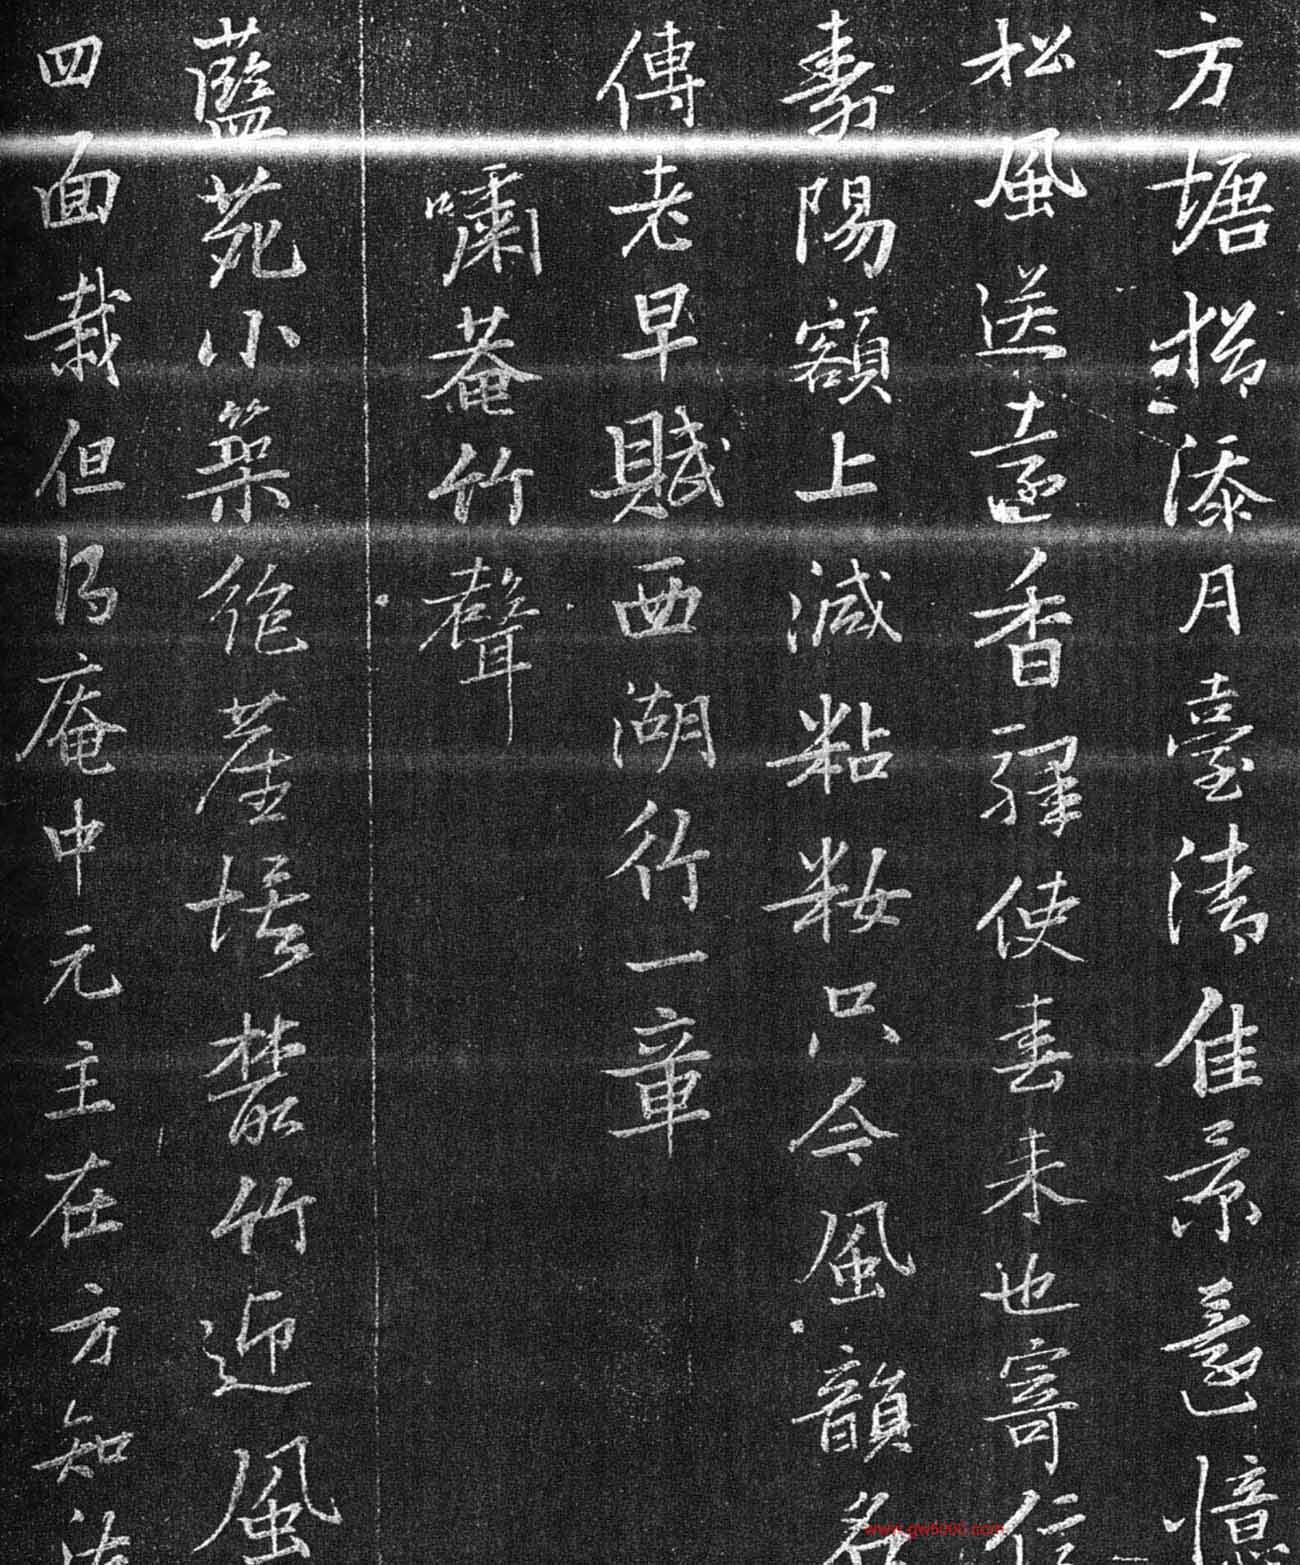 方塘㨗添月臺清佳景邀憶
松風送遠香驛使春來也寄信
壽陽額上減粘妝只今風韻名
傳老早賦西湖行一章
嘯菴竹聲
藍苑小築依崖
叢竹近風
四面栽但得庵中元主在方知
www.gw5000.com